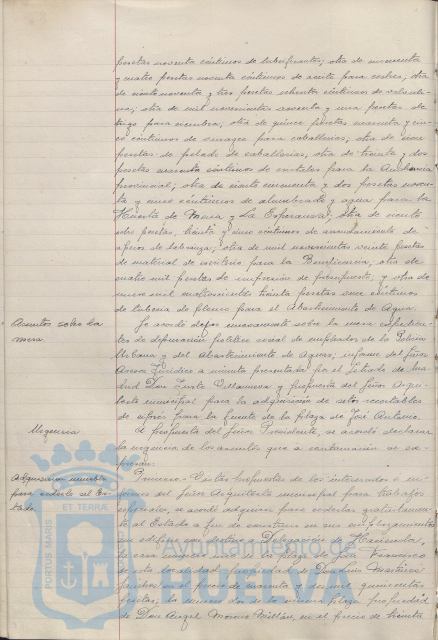 pesetas noventa céntimos de lubrificantes; otra de cincuenta
y cuatro pesetas noventa céntimos de aceite para coches; otra
de ciento noventa y tres pesetas ochenta céntimos de
otra de mil novecientas noventa y una pesetas de
trigo para siembra; otra de quince pesetas cuarenta y cin-
co céntimos de para caballerías; otra de cien
pesetas de pelado de caballerías; otra de treinta y dos
pesetas cuarenta céntimos de cristales para la Audiencia
provincial; otra de ciento cincuenta y dos pesetas noven-
ta y cinco céntimos de alumbrado y agua para la
Huerta de Mena y La Esperanza; otra de ciento
dos pesetas, treinta y cinco céntimos de arrendamiento de
aperos de labranza; otra de mil novecientas veinte pesetas
de material de escritorio para la Beneficencia; otra de
cuatro mil pesetas de impresión de presupuesto; y otra de
cinco mil ochocientas treinta pesetas once céntimos
de tubería de plomo para el Abastecimiento de Agua.
Asuntos sobre la
mesa
Se acordó dejar nuevamente sobre la mesa expedien-
tes de depuración político social de empleados de la Policía
Urbana y del Abastecimiento de Aguas, informe del Señor
Asesor Jurídico a minuta presentada por el Letrado de Ma-
drid Don Villanueva y propuesta del Señor Arqui-
tecto municipal para la adquisición de setos recortables
de ciprés para la fuente de la plaza de José Antonio.
Urgencia
A propuesta del Señor Presidente, se acordó declarar
la urgencia de los asuntos que a continuación se ex-
presan:
Adquisición inmueble
para cederlo al Es-
tado
Primero.- Vistas propuestas de los interesados e in-
formes del Señor Arquitecto municipal para trabajos
se acordó adquirir para cederlos gratuitamen-
te al Estado a fin de construir en su emplazamiento
un edificio con destino a Delegación de Hacienda,
la casa de la plaza de San Francisco
de esta localidad, propiedad de Don Luis Martínez
en el precio de cuarenta y mil quinientas
pesetas; la número dos de la misma plaza, propiedad
de Don Angel Moreno Millán, en el precio de treinta
ET TERRA
PORTUS MARIS
CUSTODIA
Ayuntamiento de
HUELVA